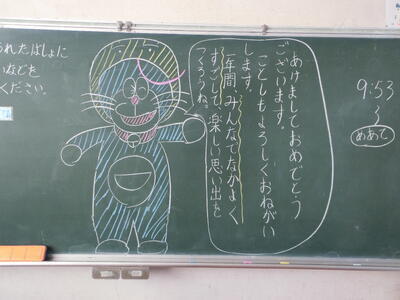 られたばしょに
いなどを
ください。
あけましておめでとう
ございます。
ことしもよろしくおねがい
します。
一年間、みんなでなかよく
すごして、楽しい思い出を
つくろうね。
9:53
めあて